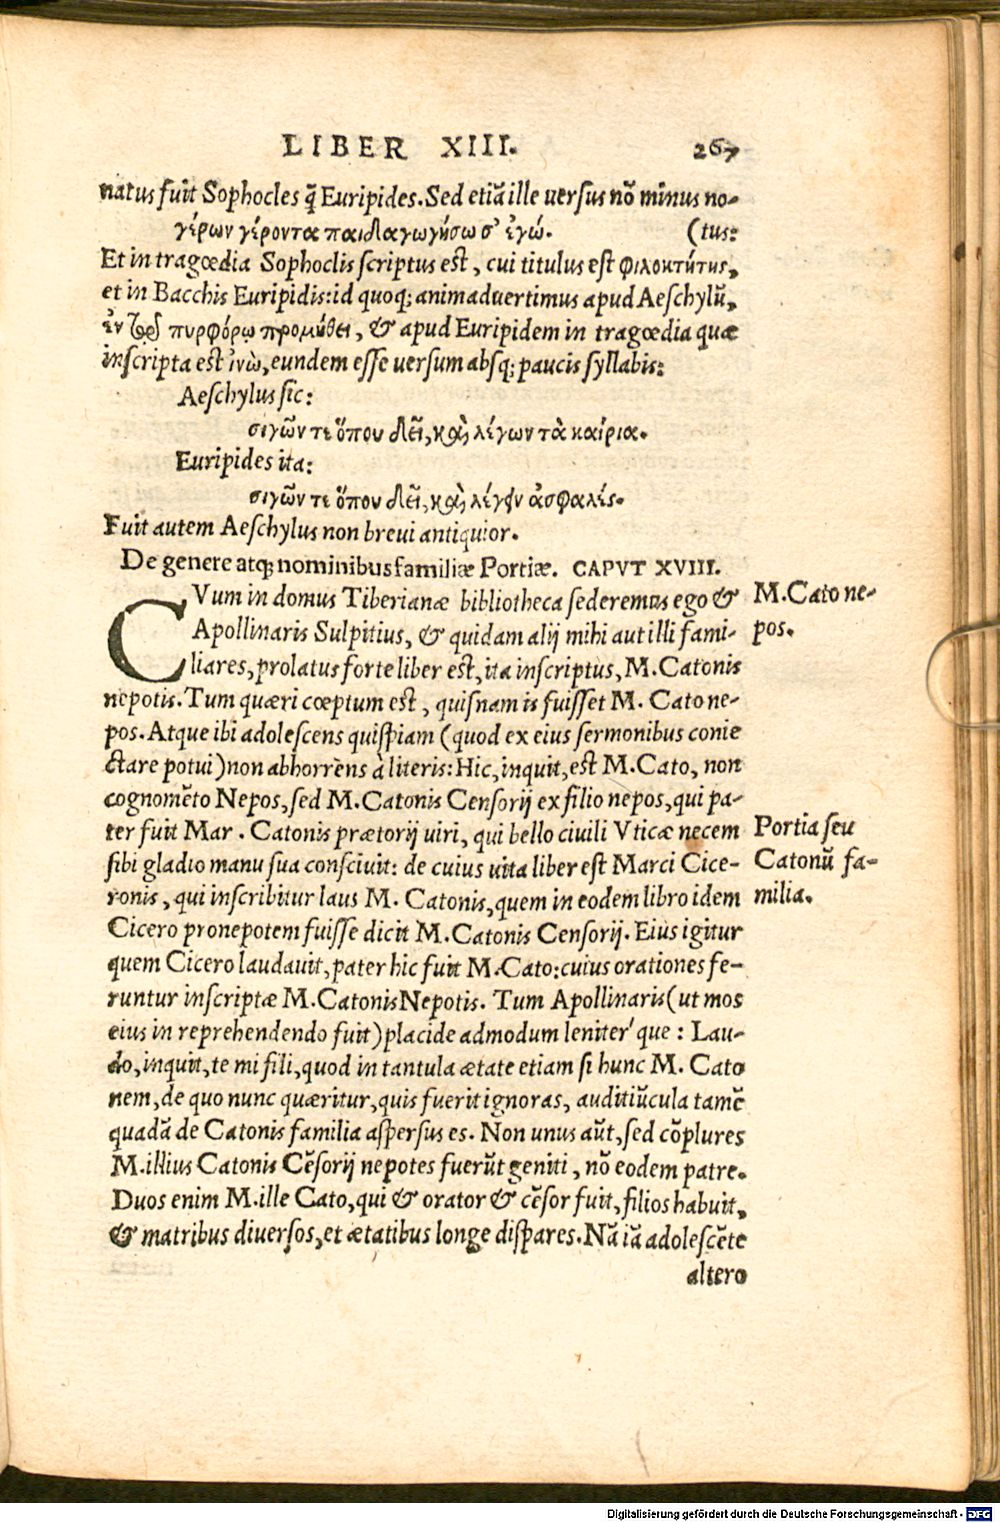 LIBER XIII. 267
natus fuit Sophocles q̃ Euripides. Sed etiã ille versus nõ minus no-
γέρων γέροντα παιδαγωγήσω σ' ἐγώ. (tus:
Et in tragœdia Sophoclis scriptus est, cui titulus est φιλοκτήτης,
et in Bacchis Euripidis: id quoq; animadvertimus apud Aeschylũ,
ἐν πυρφόρῳ προμήθει, & apud Euripidem in tragœdia quæ
inscripta est ἰνὼ, eundem esse versum absq; paucis syllabis:
Aeschylus sic:
σιγῶν τε ὅπου δεῖ, καὶ λέγων τὰ καίρια.
Euripides ita:
σιγῶν τε ὅπου δεῖ, καὶ λέγειν ἀσφαλές.
Fuit autem Aeschylus non brevi antiquior.
De genere atq; nominibus familiæ Portiæ. CAPVT XVIII.
CVum in domus Tiberianæ bibliotheca sederemus ego &
Apollinaris Sulpitius, & quidam alij mihi aut illi fami-
liares, prolatus forte liber est, ita inscriptus, M. Catonis
nepotis. Tum quæri cœptum est, quisnam is fuisset M. Cato ne-
pos. Atque ibi adolescens quispiam (quod ex eius sermonibus conie
ctare potui) non abhorrens à literis: Hic, inquit, est M. Cato, non
cognomẽto Nepos, sed M. Catonis Censorij ex filio nepos, qui pa-
ter fuit Mar. Catonis prætorij viri, qui bello civili Vticæ necem
sibi gladio manu sua conscivit: de cuius vita liber est Marci Cice-
ronis, qui inscribitur laus M. Catonis, quem in eodem libro idem
Cicero pronepotem fuisse dicit M. Catonis Censorij. Eius igitur
quem Cicero laudavit, pater hic fuit M. Cato: cuius orationes fe-
runtur inscriptæ M. Catonis Nepotis. Tum Apollinaris (ut mos
eius in reprehendendo fuit) placide admodum leniter'que: Lau-
do, inquit, te mi fili, quod in tantula ætate etiam si hunc M. Cato
nem, de quo nunc quæritur, quis fuerit ignoras, auditiũcula tamẽ
quadã de Catonis familia aspersus es. Non unus aũt, sed cõplures
M. illius Catonis Cẽsorij nepotes fuerũt geniti, nõ eodem patre.
Duos enim M. ille Cato, qui & orator & cẽsor fuit, filios habuit,
& matribus diversos, et ætatibus longe dispares. Nã iã adolescẽte
altero
M. Cato ne-
pos.
Portia seu
Catonũ fa-
milia.
Digitalisierung gefördert durch die Deutsche Forschungsgemeinschaft - DFG